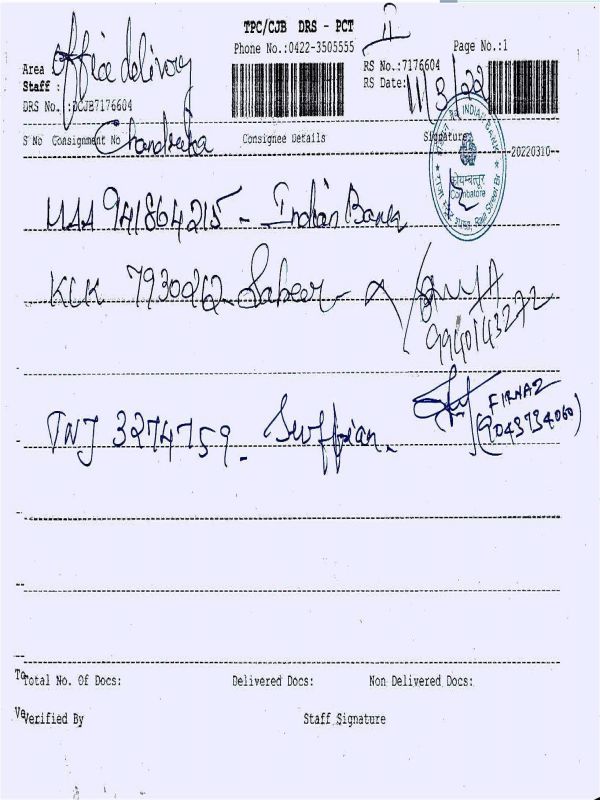 TPC/CJB DRS - PCT
II
Phone No.:0422-3505555
Page No.:1
Area
office delivory
RS No.:7176604
Staff :
RS Date:
11/3/22
DRS No. :DCJB7176604
S No Consignment No
Chandrika
Consignee Details
Signature
20220310
INDIAN BANK
कोयम्बत्तूर
Coimbatore
MAA 941864215 - Indian Bank
KCK 7930962 - Saheer -
9940143272
TNJ 3274759 - Suffian.
FIRNAZ
(9043734060)
Total No. Of Docs:
Delivered Docs:
Non Delivered Docs:
Verified By
Staff Signature